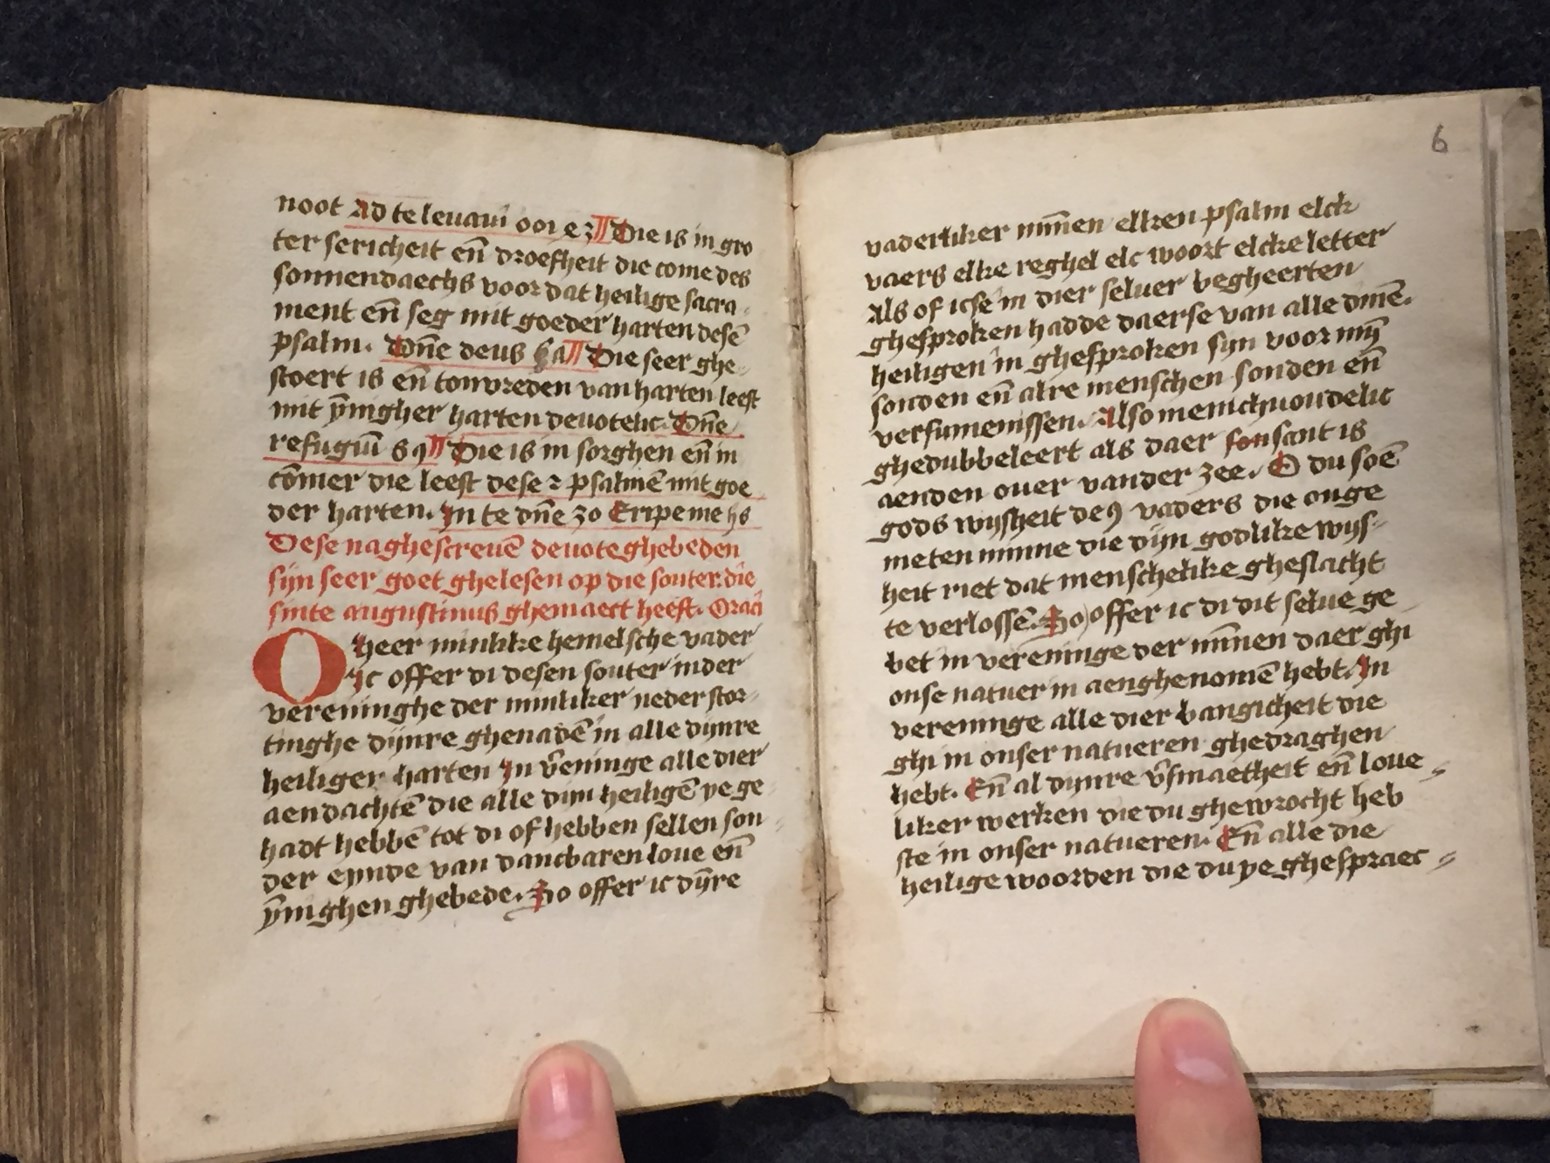 noot Ad te leuaui ooi e z Die is in gro
ter sericheit en̄ droefheit die come des
sonnendaechs voor dat heilige sacra-
ment en̄ seg mit goeder harten desē
psalm. Dn̄e deus Die seer ghe-
stoert is en̄ tonvreden van harten leest
mit ȳnigher harten deuotelic. Dn̄e
refugiū Die is in sorghen en̄ in
cōmer die leest dese 2 psalmē mit goe
der harten. In te dn̄e 30 Eripe me
Dese naghescreuē deuote ghebeden
sijn seer goet ghelesen op die souter. die
sinte augustinus ghemaect heeft. Oraci
O heer minlike hemelsche vader
ic offer di desen souter in der
vereninghe der minliker neder stor-
tinghe dijnre ghenadē in alle dijnre
heiliger harten In v̄eninge alle dier
aendachtē die alle dijn heiligē ye ge-
hadt hebbē tot di of hebben sellen son-
der eynde van dancbaren loue en̄
ȳnighen ghebede. Io offer ic dȳre
6
vaderliker mīnen elken psalm elck
vaers elke reghel elc woort elcke letter
Als of icse in dier seluer begheerten
ghesproken hadde daerse van alle dinē
heiligen in ghesproken sijn voor mij
sonden en̄ alre menschen sonden en̄
versumenissen. Also menichuoudelic
ghedubbeleert als daer sant is
aenden ouer vander zee. O du soē
gods wijsheit des vaders die onge
meten minne die dijn godlike wijs-
heit riet dat menschelike gheslacht
te verlossē. Io offer ic di dit selue ge
bet in vereninge der mīnen daer ghi
onse natuer in aenghenomē hebt. In
vereninge alle dier bangicheit die
ghi in onser natueren ghedraghen
hebt. En̄ al dijnre v̄smaetheit en̄ loue-
liker werken die du ghewrocht heb
ste in onser natueren. En̄ alle die
heilige woorden die du ye ghespraec-